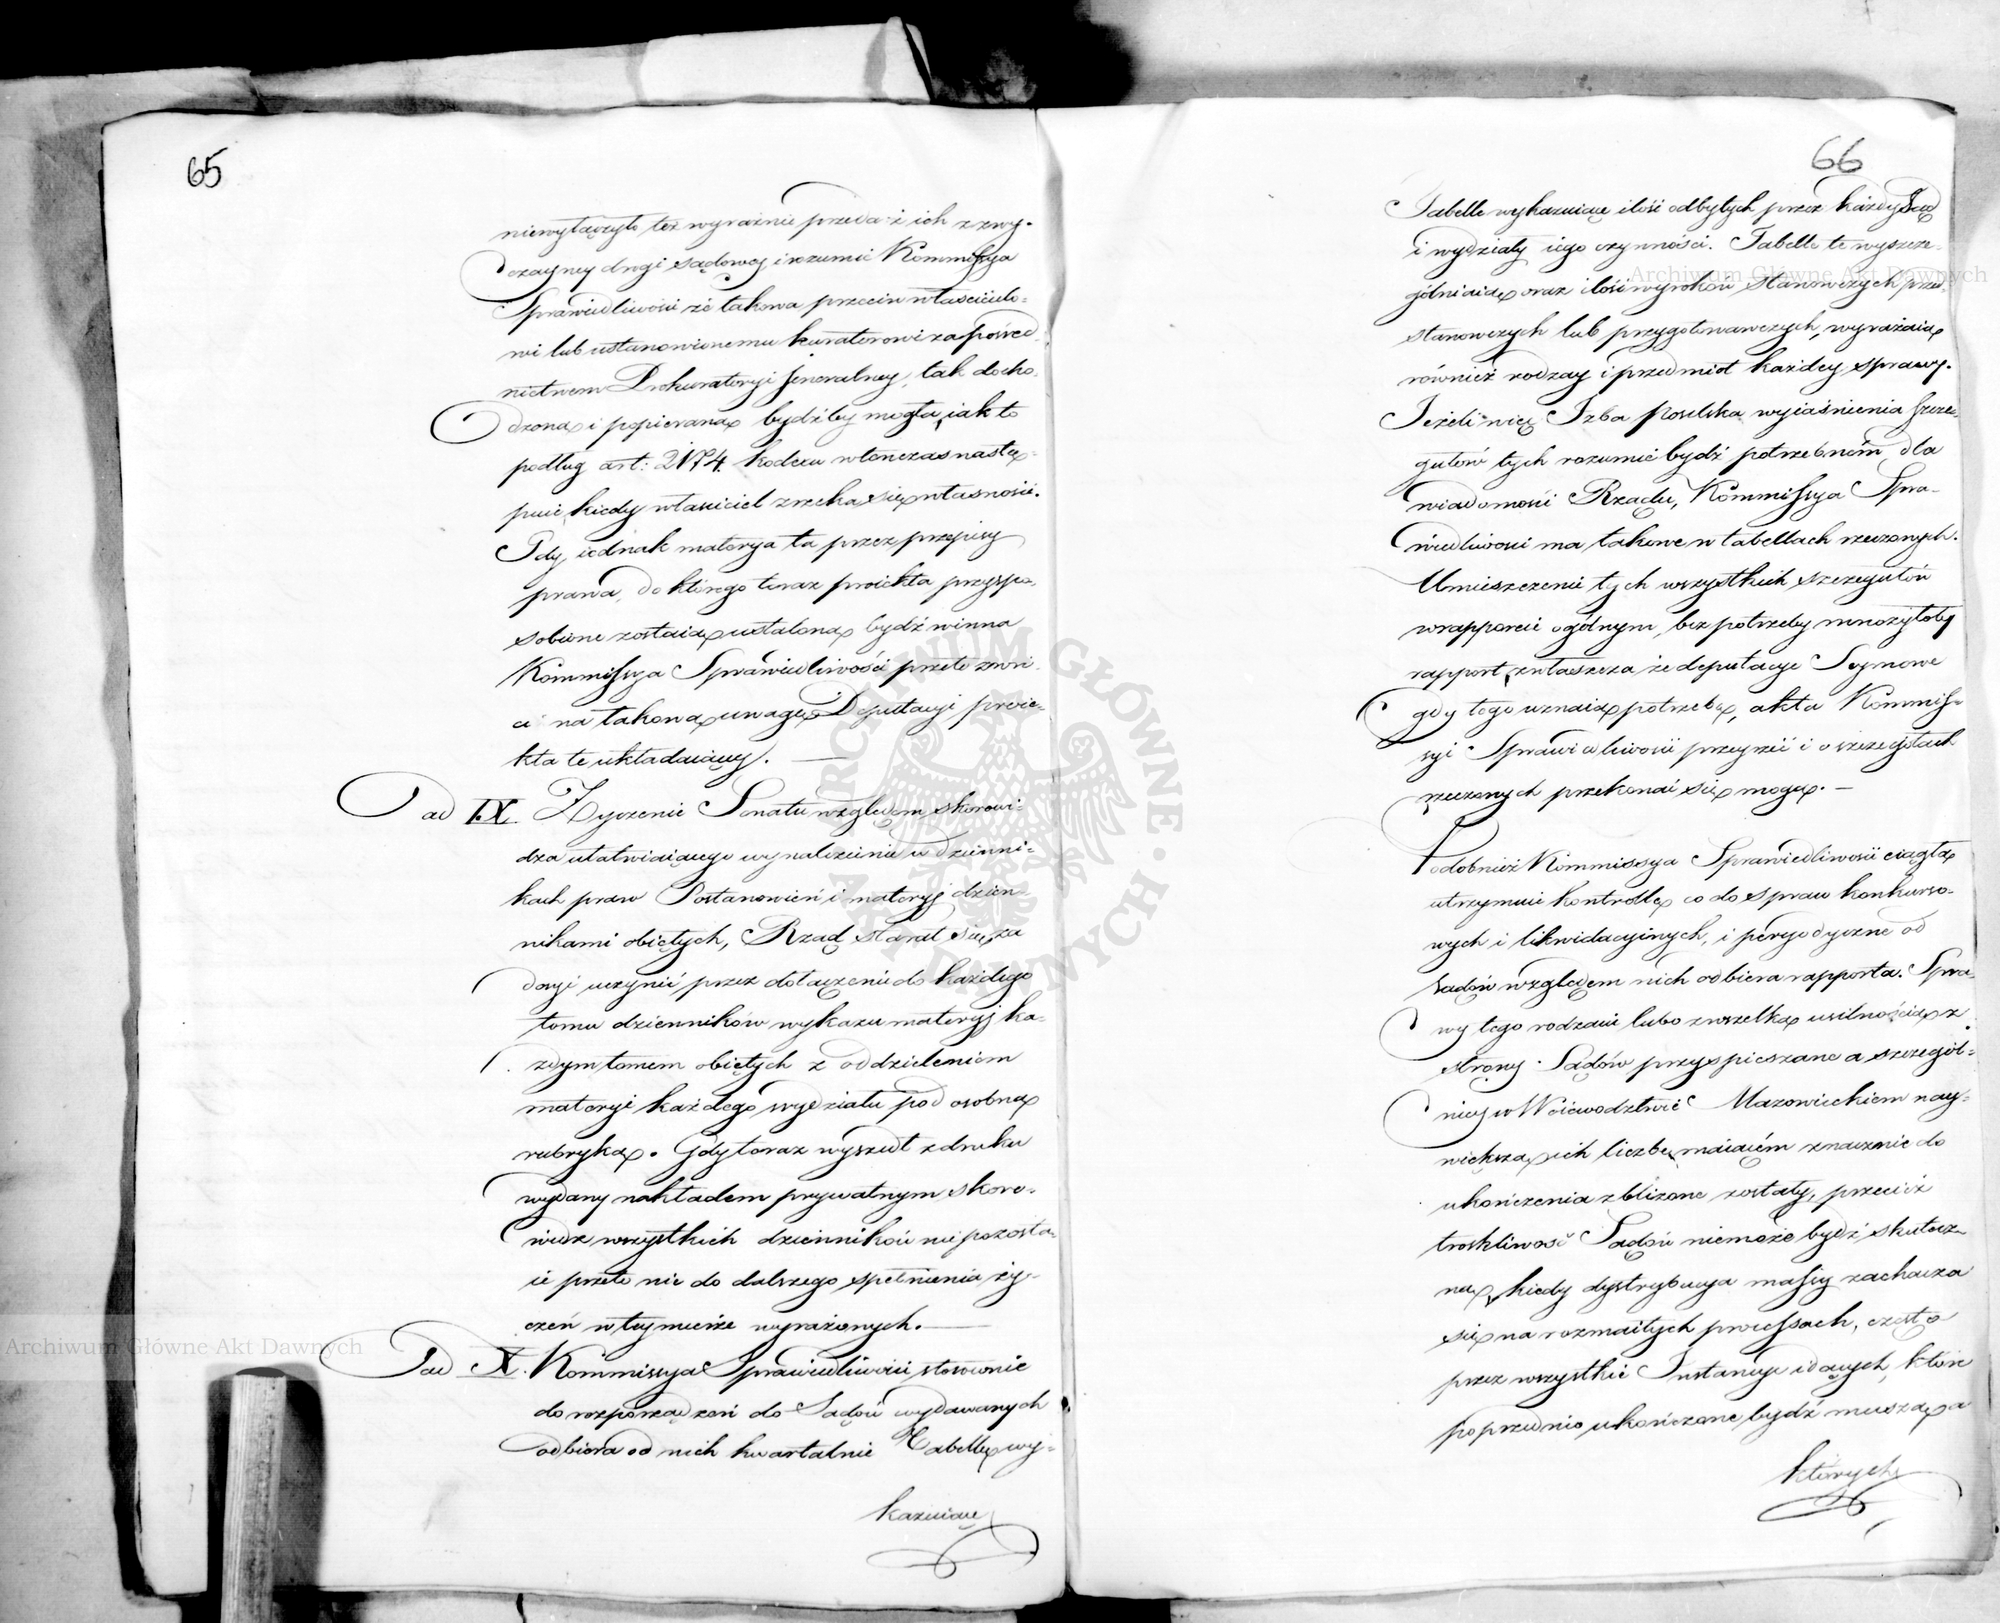 65
niewyłączyło też wyraźnie przedaż ich z zwy-
czayney drogi sądowey, rozumie Kommissya
Sprawiedliwości że takowa przeciw właścicielo-
wi lub ustanowionemu kuratorowi za pośred-
nictwem Prokuratoryi Jeneralney, tak docho-
dzoną i popieraną bydźby mogła, jak to
podług art: 2174 kodexu wtenczas nastę-
puie, kiedy właściciel zrzeka się własności.
Gdy jednak materya ta przez przepisy
prawa, do którego teraz proiekta przyspo-
sobione zostaią ustaloną bydź winna
Kommissya Sprawiedliwości przeto zwró-
ci na takową uwagę Deputacyi proie-
kta te układaiącey. —
ad IX. Życzenie Senatu względem skorowi-
dza ułatwiaiącego wynalezienie w dzienni-
kach praw Postanowień i materyj dzien-
nikami obiętych, Rząd starał się za-
dosyć uczynić przez dołączenie do każdego
tomu dzienników wykazu materyj ka-
żdym tomem obiętych z oddzieleniem
materyi każdego wydziału pod osobną
rubryką. Gdy teraz wyszedł z druku
wydany nakładem prywatnym skoro-
widz wszystkich dzienników nie pozosta-
ie przeto nic do dalszego spełnienia ży-
czeń w tey mierze wyrażonych. —
ad X. Kommissya Sprawiedliwości stosownie
do rozporządzeń do Sądów wydawanych
odbiera od nich kwartalnie Tabelle wy-
kazuiące
66
Tabelle wykazuiące ilość odbytych przez każdy Sąd
i wydziały iego czynności. Tabelle te wyszcze-
gólniaią oraz ilość wyroków stanowczych przed-
stanowczych lub przygotowawczych, wyrażaią
również rodzay i przedmiot każdey sprawy.
Jeżeli więc Izba Poselska wyiaśnienia szcze-
gułów tych rozumie bydź potrzebném, dla
wiadomości Rządu, Kommissya Spra-
wiedliwości ma takowe w tabellach rzeczonych.
Umieszczenie tych wszystkich szczegułów
w rapporcie ogólnym bez potrzeby mnożyłoby
rapport, zwłaszcza, że deputacye Seymowe
gdy tego uznaią potrzebę, akta Kommis-
syi Sprawiedliwości przeyrzeć i o szczegółach
rzeczonych przekonać się mogą. —
Podobnież Kommissya Sprawiedliwości ciągłą
utrzymuie kontrollę co do spraw konkurso-
wych i likwidacyinych, i peryodyczne od
Sądów względem nich odbiera rapporta. Spra-
wy tego rodzaiu lubo z wszelką usilnością z
strony Sądów przyspieszane a szczegól-
niey w Woiewództwie Mazowieckiem nay-
większą ich liczbę maiącém znacznie do
ukończenia zbliżone zostały, przecież
troskliwość Sądów niemoże bydź skutecz-
ną, kiedy dystrybucya massy zachacza
się na rozmaitych processach, często
przez wszystkie Instancye idących, które
poprzednio ukończone bydź muszą, a
których
Archiwum Główne Akt Dawnych
Archiwum Główne Akt Dawnych
ARCHIWUM GŁÓWNE AKT DAWNYCH